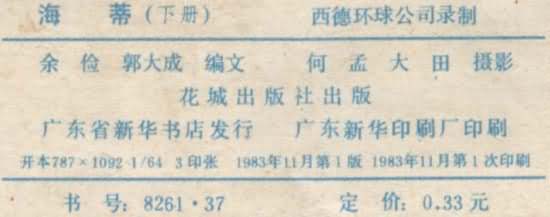 海 蒂（下册） 西德环球公司录制
余 俭 郭大成 编文 何 孟 大 田 摄影
花城出版社出版
广东省新华书店发行 广东新华印刷厂印刷
开本787×1092 1/64 3印张 1983年11月第1版 1983年11月第1次印刷
书 号：8261·37 定 价：0.33元